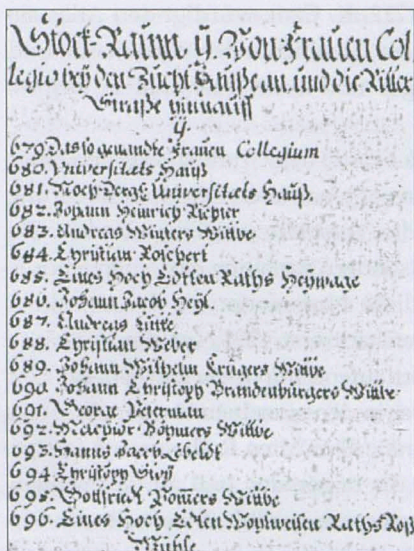 Stock-Raum ÿ. Von Frauen Col
legio beÿ den Zucht Hauße an, und die Ritter
Straße hinnauff
ÿ
679. Das so genandte Frauen Collegium
680. Universitaets Hauß
681. Noch Dergl: Universitaets Hauß.
682. Johann Heinrich Richter
683. Andreas Winters Wittbe
684. Christian Roschert
685. Eines Hoch Edlen Raths Heÿwage
686. Johann Jacob Heÿl.
687. Andreas
688. Christian Weber
689. Johann Wilhelm Krügers Wittbe
690. Johann Christoph Brandenburgers Wittbe
691. George Peterman
692. Melchior Böhmers Wittbe
693. Hanns Jacob Lebeldt
694. Christoph
695. Gottfried Pomers Wittbe
696. Eines Hoch Edlen Wohlweisen Raths Roß
Mühle.